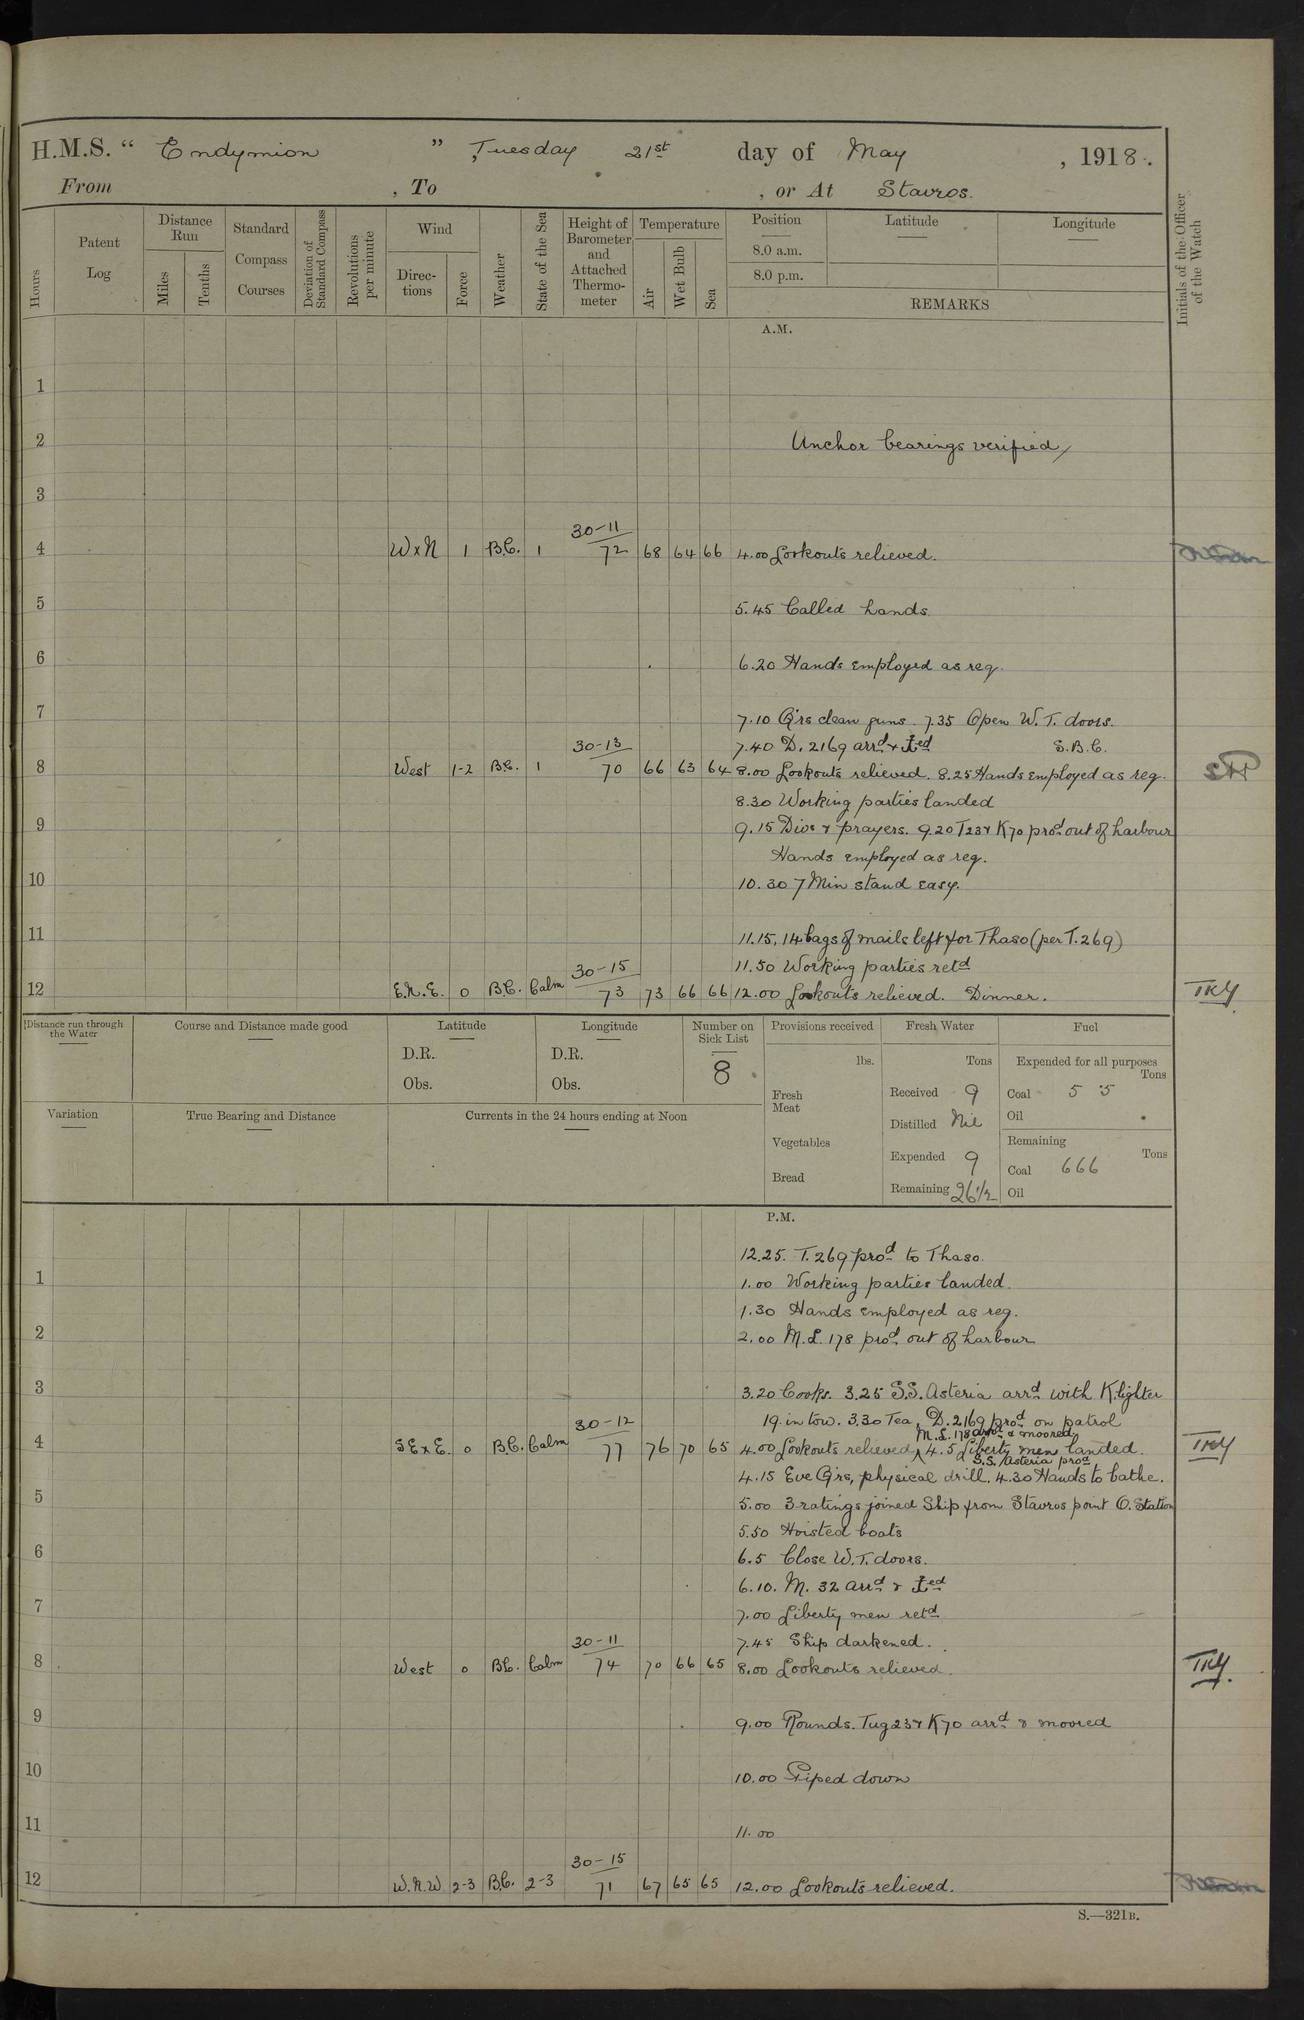 H.M.S. “ Endymion ” , Tuesday 21st day of May , 1918.
From , To , or At Stavros.
Hours
Patent Log
Distance Run
Miles
Tenths
Standard Compass Courses
Deviation of Standard Compass
Revolutions per minute
Wind
Direc-tions
Force
Weather
State of the Sea
Height of Barometer and Attached Thermo-meter
Temperature
Air
Wet Bulb
Sea
Position
8.0 a.m.
8.0 p.m.
Latitude
Longitude
REMARKS
Initials of the Officer of the Watch
A.M.
1
2 Anchor bearings verified
3
30-11
4 WxN 1 B.C. 1 72 68 64 66 4.00 Lookouts relieved.
5 5.45 Called hands.
6 6.20 Hands employed as req.
7 7.10 Qrs clean guns. 7.35 Open W.T. doors.
30-13 7.40 D. 2169 arrd & ⚓ed S.B.C.
8 West 1-2 B.C. 1 70 66 63 64 8.00 Lookouts relieved. 8.25 Hands employed as req.
8.30 Working parties landed
9 9.15 Divs & prayers. 9.20 T23 & K70 prod out of harbour
Hands employed as req.
10 10.30 7 Min stand easy.
11 11.15. 14 bags of mails left for Thaso (per T.269)
30-15 11.50 Working parties retd
12 E.N.E. 0 B.C. Calm 73 73 66 66 12.00 Lookouts relieved. Dinner. TKY
Distance run through the Water
Course and Distance made good
Latitude
D.R.
Obs.
Longitude
D.R.
Obs.
Number on Sick List
8
Provisions received
lbs.
Fresh Meat
Vegetables
Bread
Fresh Water
Tons
Received 9
Distilled Nil
Expended 9
Remaining 26½
Fuel
Expended for all purposes
Tons
Coal 55
Oil
Remaining
Tons
Coal 666
Oil
Variation
True Bearing and Distance
Currents in the 24 hours ending at Noon
P.M.
12.25. T. 269 prod to Thaso.
1 1.00 Working parties landed.
1.30 Hands employed as req.
2 2.00 M.L. 178 prod out of harbour
3 3.20 Cooks. 3.25 S.S. Asteria arrd with K lighter
30-12 19 in tow. 3.30 Tea, D. 2169 prod on patrol
M.L. 178 arrd & moored
4 SExE. 0 B.C. Calm 77 76 70 65 4.00 Lookouts relieved ^ 4.5 Liberty men landed. TKY
S.S. Asteria prod
4.15 Eve Qrs, physical drill. 4.30 Hands to bathe.
5 5.00 3 ratings joined Ship from Stavros point O. Station
5.50 Hoisted boats
6 6.5 Close W.T. doors.
6.10. M. 32 arrd & ⚓ed
7 7.00 Liberty men retd
30-11 7.45 Ship darkened.
8 West 0 B.C. Calm 74 70 66 65 8.00 Lookouts relieved. TKY.
9 9.00 Rounds. Tug 23 & K70 arrd & moored
10 10.00 Piped down
11 11.00
30-15
12 W.N.W 2-3 B.C. 2-3 71 67 65 65 12.00 Lookouts relieved.
S.—321B.